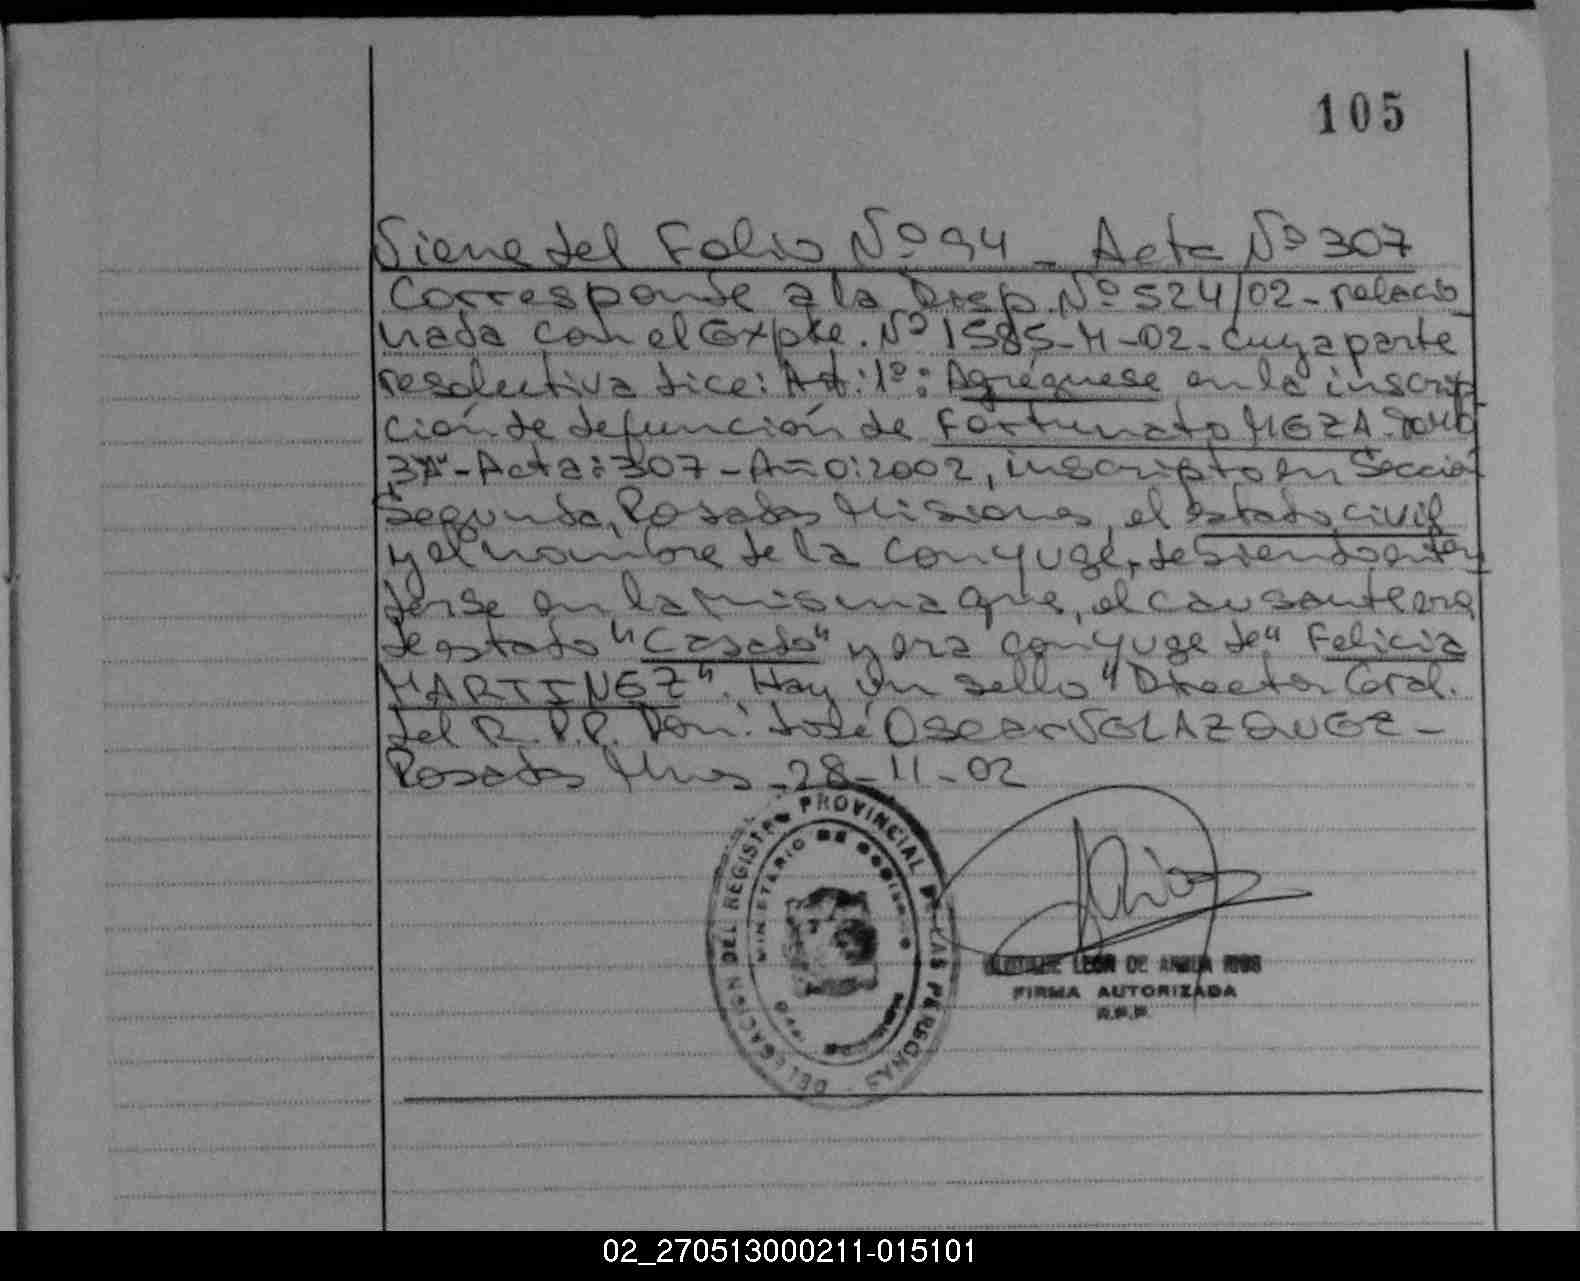 105
Viene del Folio Nº 94 - Acta Nº 307
Corresponde a la Disp. Nº 524/02 - relacio
nada con el Expte. Nº 1585-M-02 - cuya parte
resolutiva dice: Art: 1º: Agréguese en la inscrip
ción de defunción de Fortunato MEZA - Tomo
3º - Acta: 307 - Año: 2002, inscripto en Sección
Segunda, Posadas Misiones, el estado civil
y el nombre de la conyuge, debiendo enten
derse en la misma que, el causante era
de estado "Casado" y era conyuge de "Felicia
MARTINEZ". Hay un sello "Director Gral.
del R.P.P. Don: José Oscar VELAZQUEZ -
Posadas Mnes - 28-11-02
DELEGACION DEL REGISTRO PROVINCIAL DE LAS PERSONAS
MINISTERIO DE GOBIERNO
LEON DE
FIRMA AUTORIZADA
R.P.P.
02_270513000211-015101